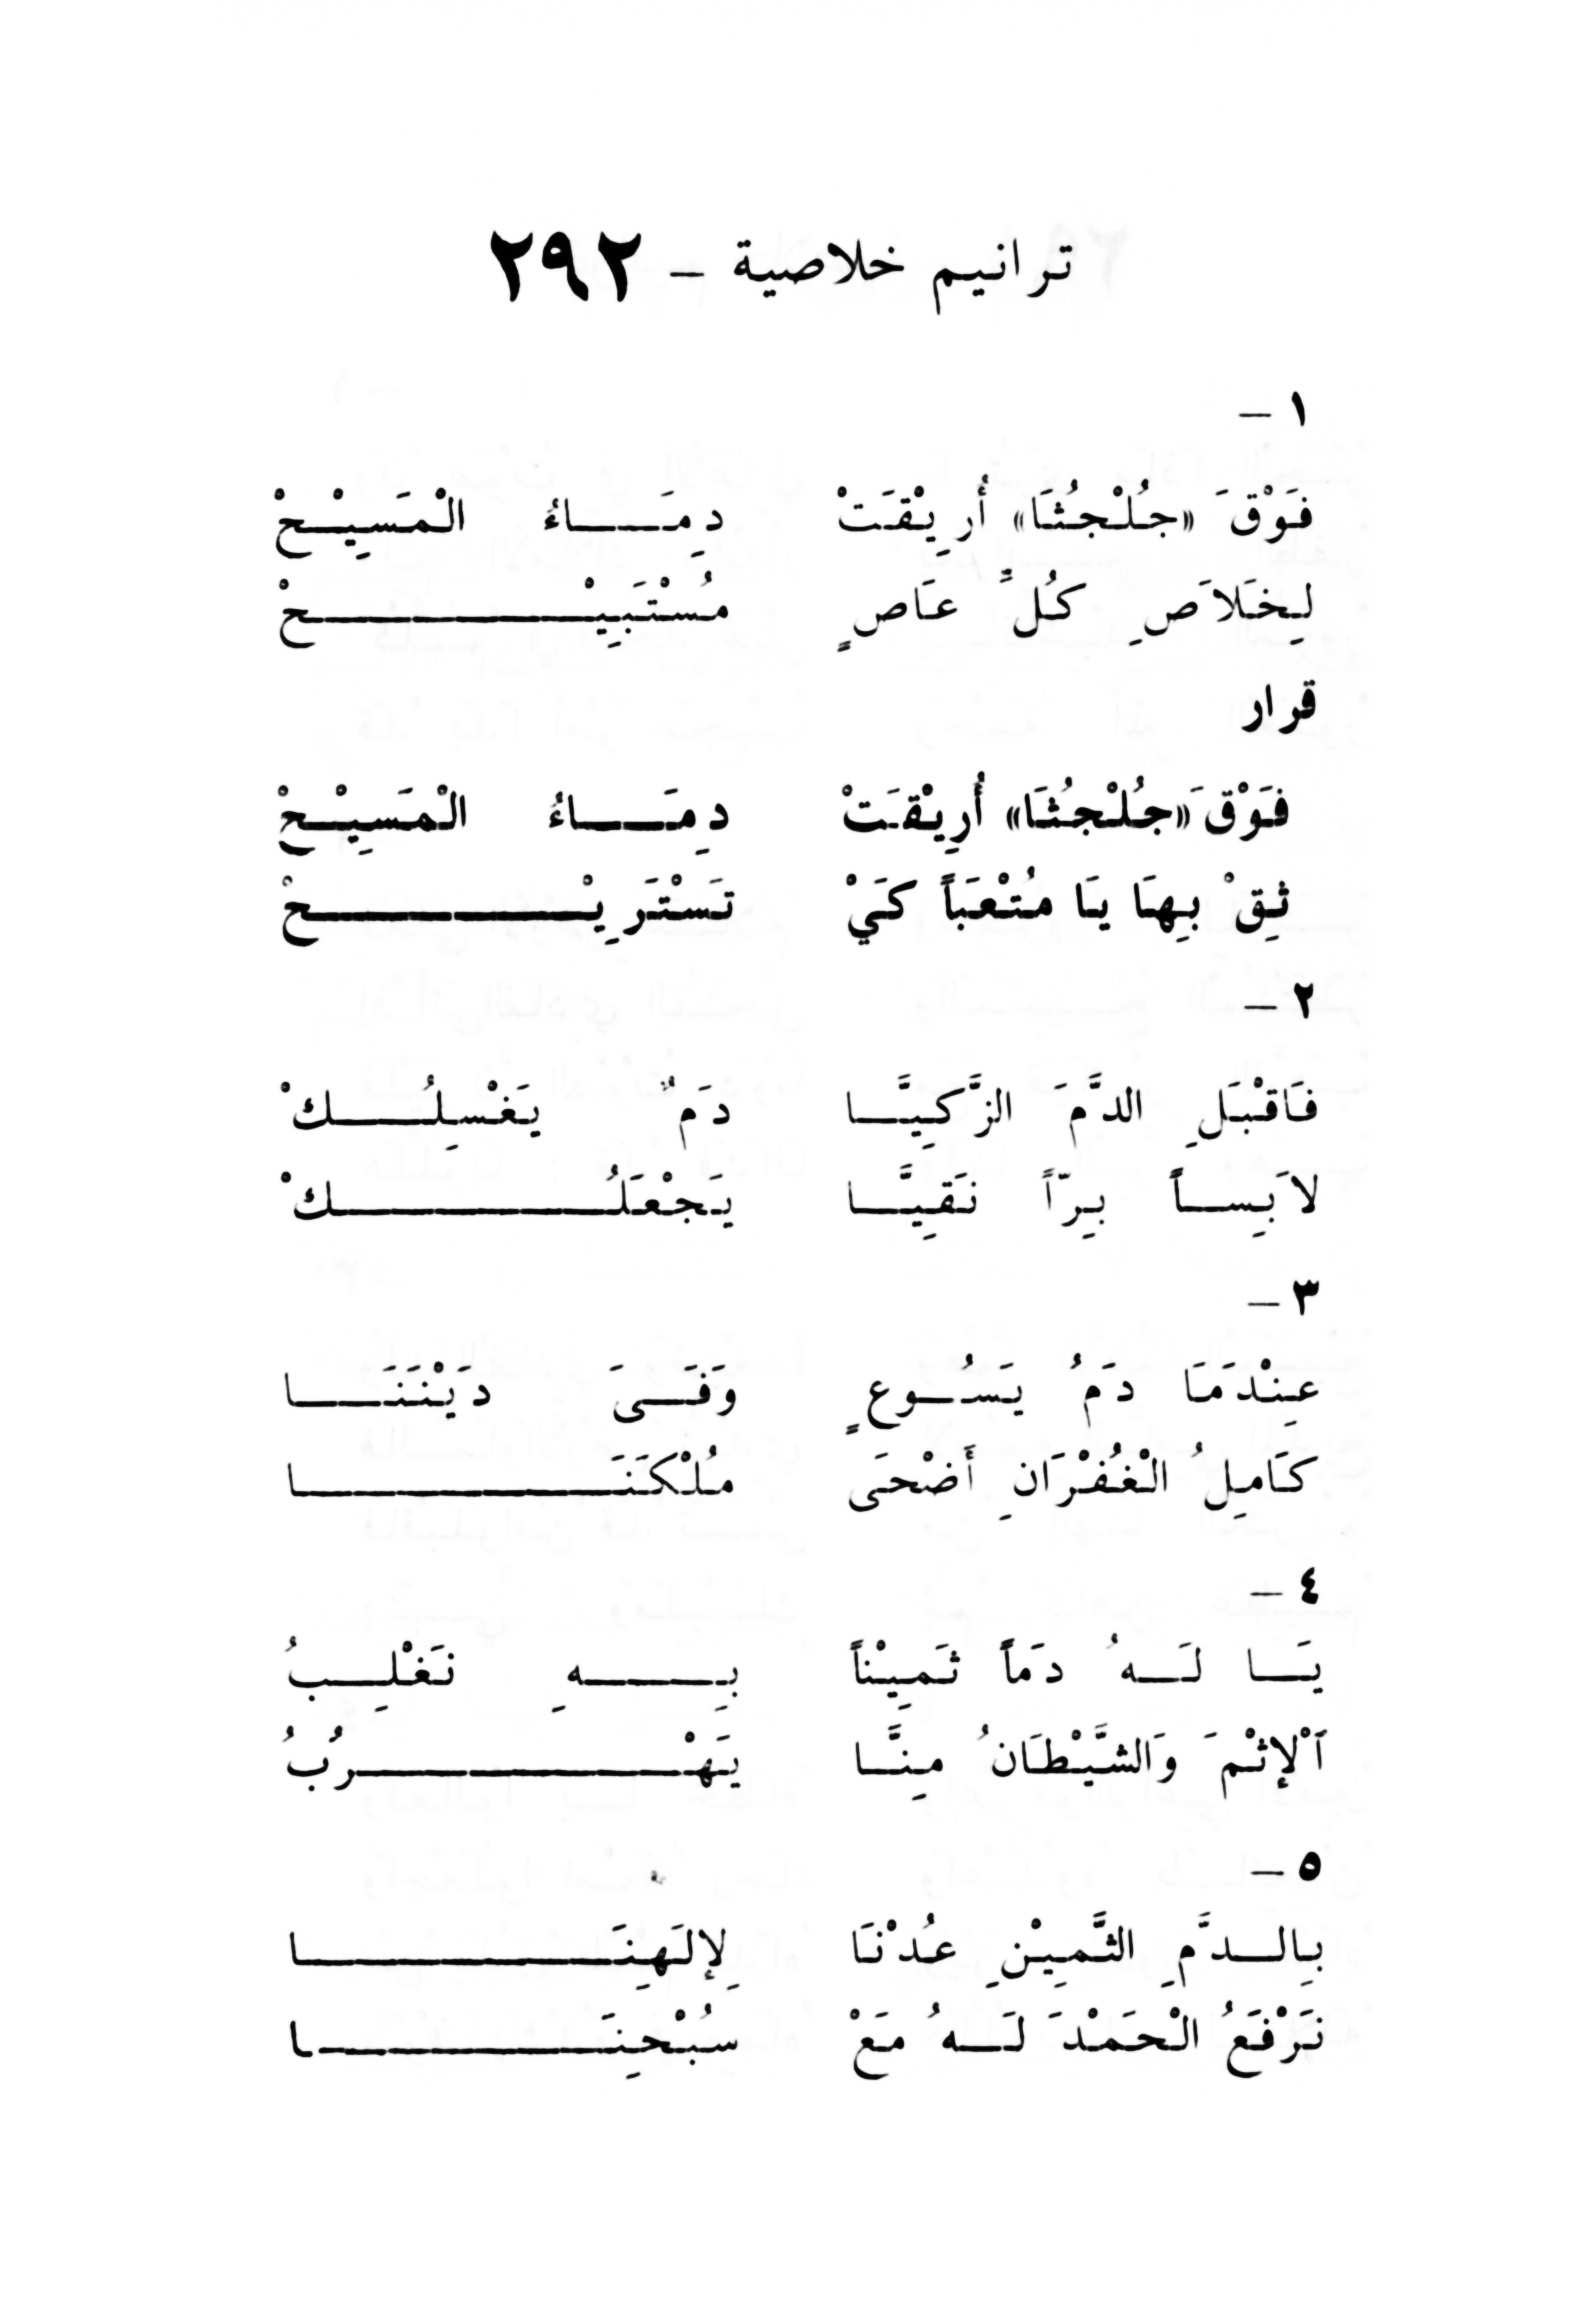 ترانيم خلاصية - ٢٩٢
١ -
فَوْقَ «جُلْجُثَا» أُرِيْقَتْ دِمَاءُ الْمَسِيْحْ
لِخَلاَصِ كُلِّ عَاصٍ مُسْتَبِيْحْ
قرار
فَوْقَ «جُلْجُثَا» أُرِيْقَتْ دِمَاءُ الْمَسِيْحْ
ثِقْ بِهَا يَا مُتْعَبَاً كَيْ تَسْتَرِيْحْ
٢ -
فَاقْبَلِ الدَّمَ الزَّكِيَّا دَمٌ يَغْسِلُكْ
لاَبِساً بِرّاً نَقِيَّا يَجْعَلُكْ
٣ -
عِنْدَمَا دَمُ يَسُوعٍ وَفَىَ دَيْنَنَا
كَامِلُ الْغُفْرَانِ أَضْحَى مُلْكَنَا
٤ -
يَا لَهُ دَمَاً ثَمِيْناً بِهِ نَغْلِبُ
اَلْإِثْمَ وَالشَّيْطَانُ مِنَّا يَهْرُبُ
٥ -
بِالدَّمِ الثَّمِيْنِ عُدْنَا لِإلَهِنَا
نَرْفَعُ الْحَمْدَ لَهُ مَعْ سُبْحِنَا